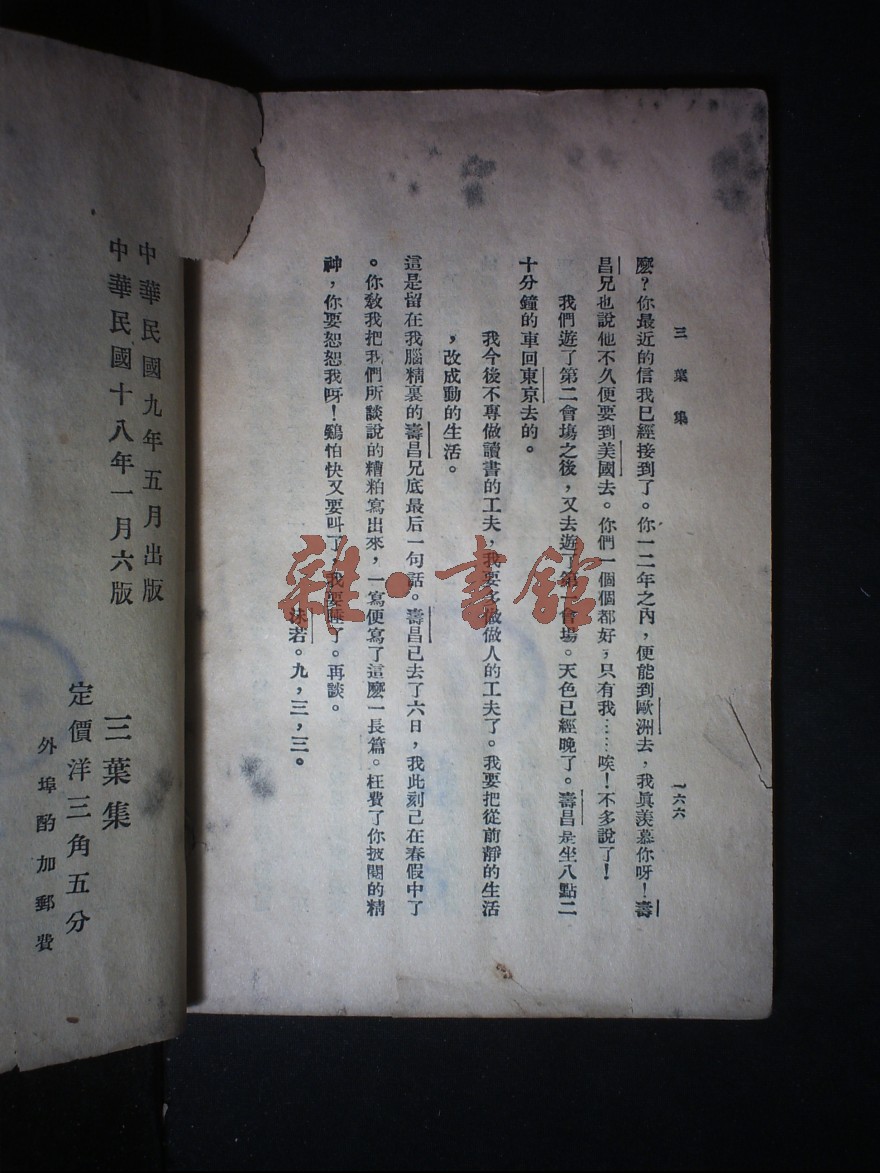 三葉集
一六六
麼？你最近的信我已經接到了。你一二年之內，便能到歐洲去，我眞羨慕你呀！壽
昌兄也說他不久便要到美國去。你們一個個都好，只有我……唉！不多說了！
我們遊了第二會塲之後，又去遊了第一會塲。天色已經晚了。壽昌是坐八點二
十分鐘的車回東京去的。
我今後不專做讀書的工夫，我要多做做人的工夫了。我要把從前靜的生活
，改成動的生活。
這是留在我腦精裏的壽昌兄底最后一句話。壽昌已去了六日，我此刻已在春假中了
。你敎我把我們所談說的糟粕寫出來，一寫便寫了這麼一長篇。枉費了你披閱的精
神，你要恕恕我呀！鷄怕快又要叫了，我要睡了。再談。
沫若。九，三，三。
中華民國九年五月出版
中華民國十八年一月六版
三葉集
定價洋三角五分
外埠酌加郵費
雜·書館